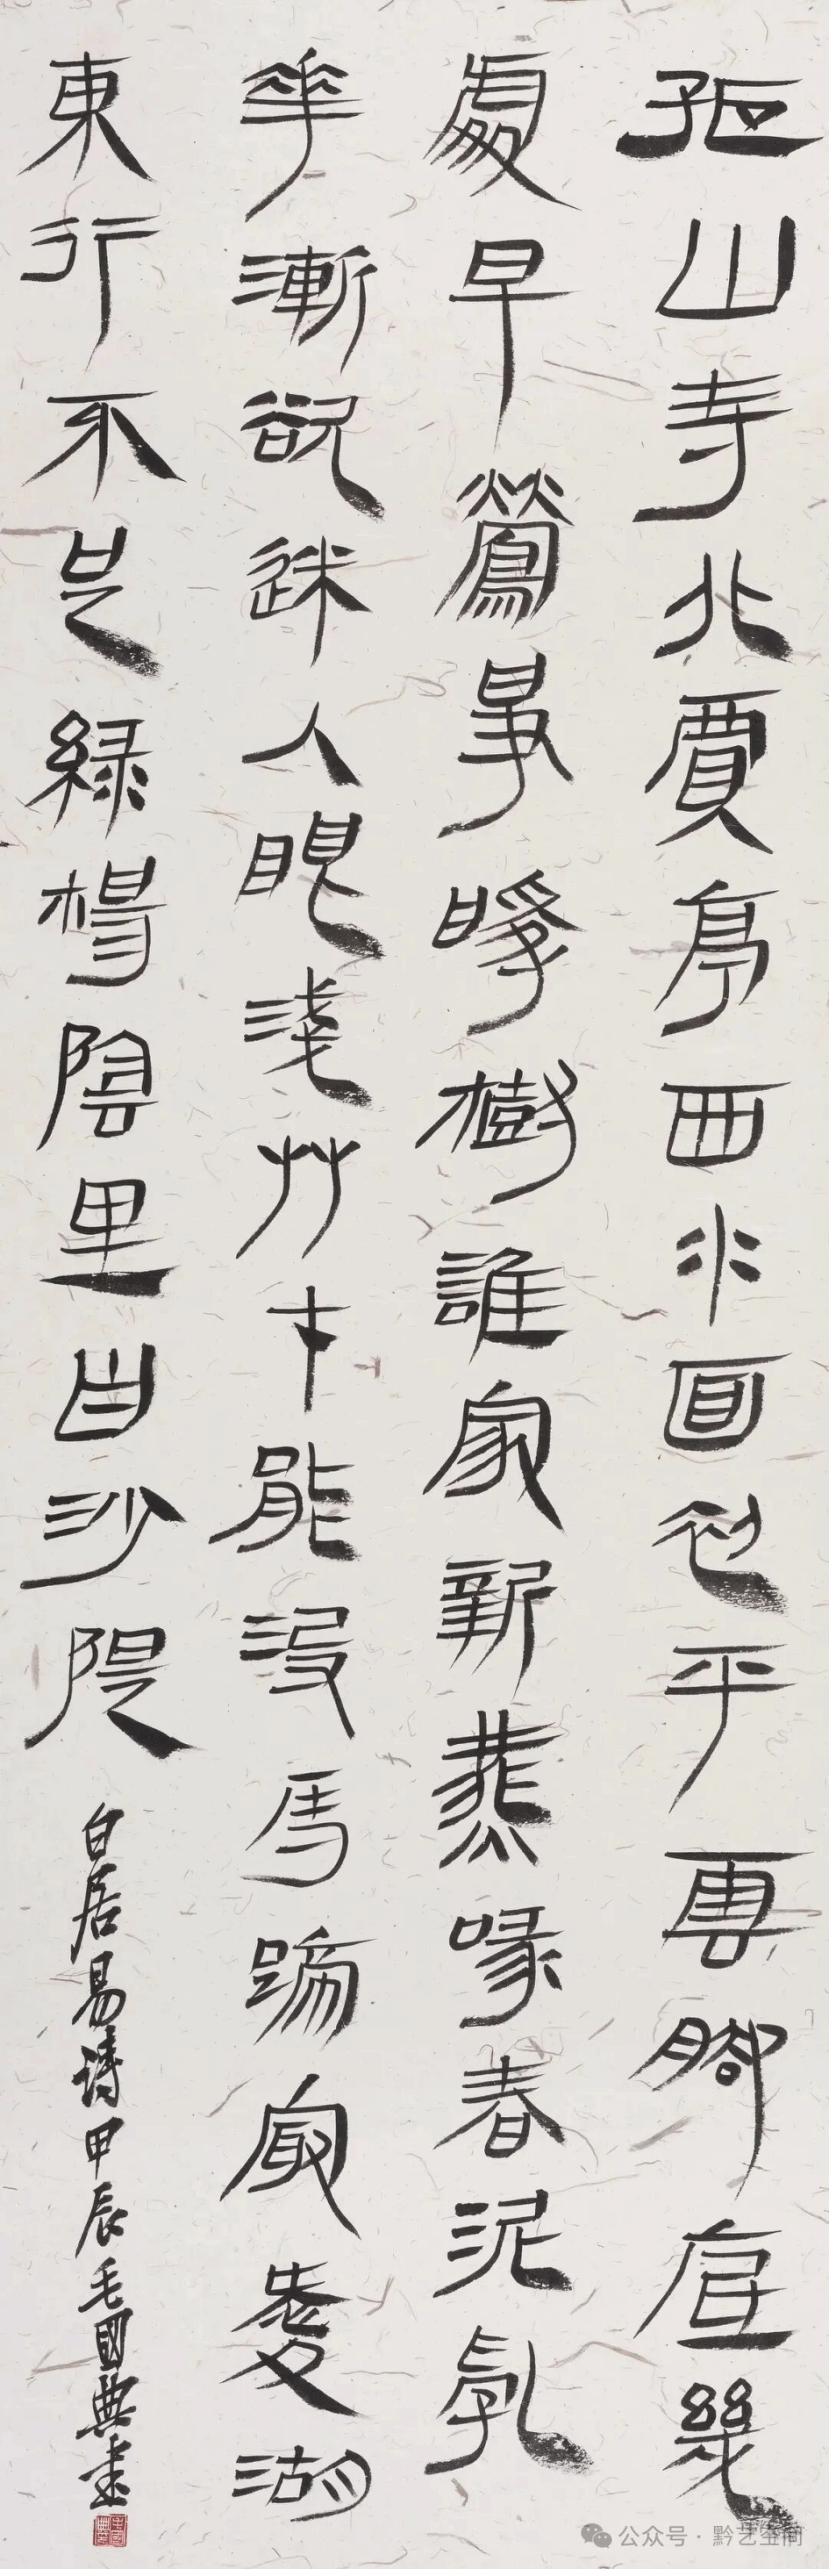 孤山寺北賈亭西水面初平雲腳低幾
處早鶯爭暖樹誰家新燕啄春泥亂
華漸欲迷人眼淺草才能沒馬蹄最愛湖
東行不足綠楊陰里白沙隄
白居易詩甲辰毛國典書
公众号 · 黔艺空间